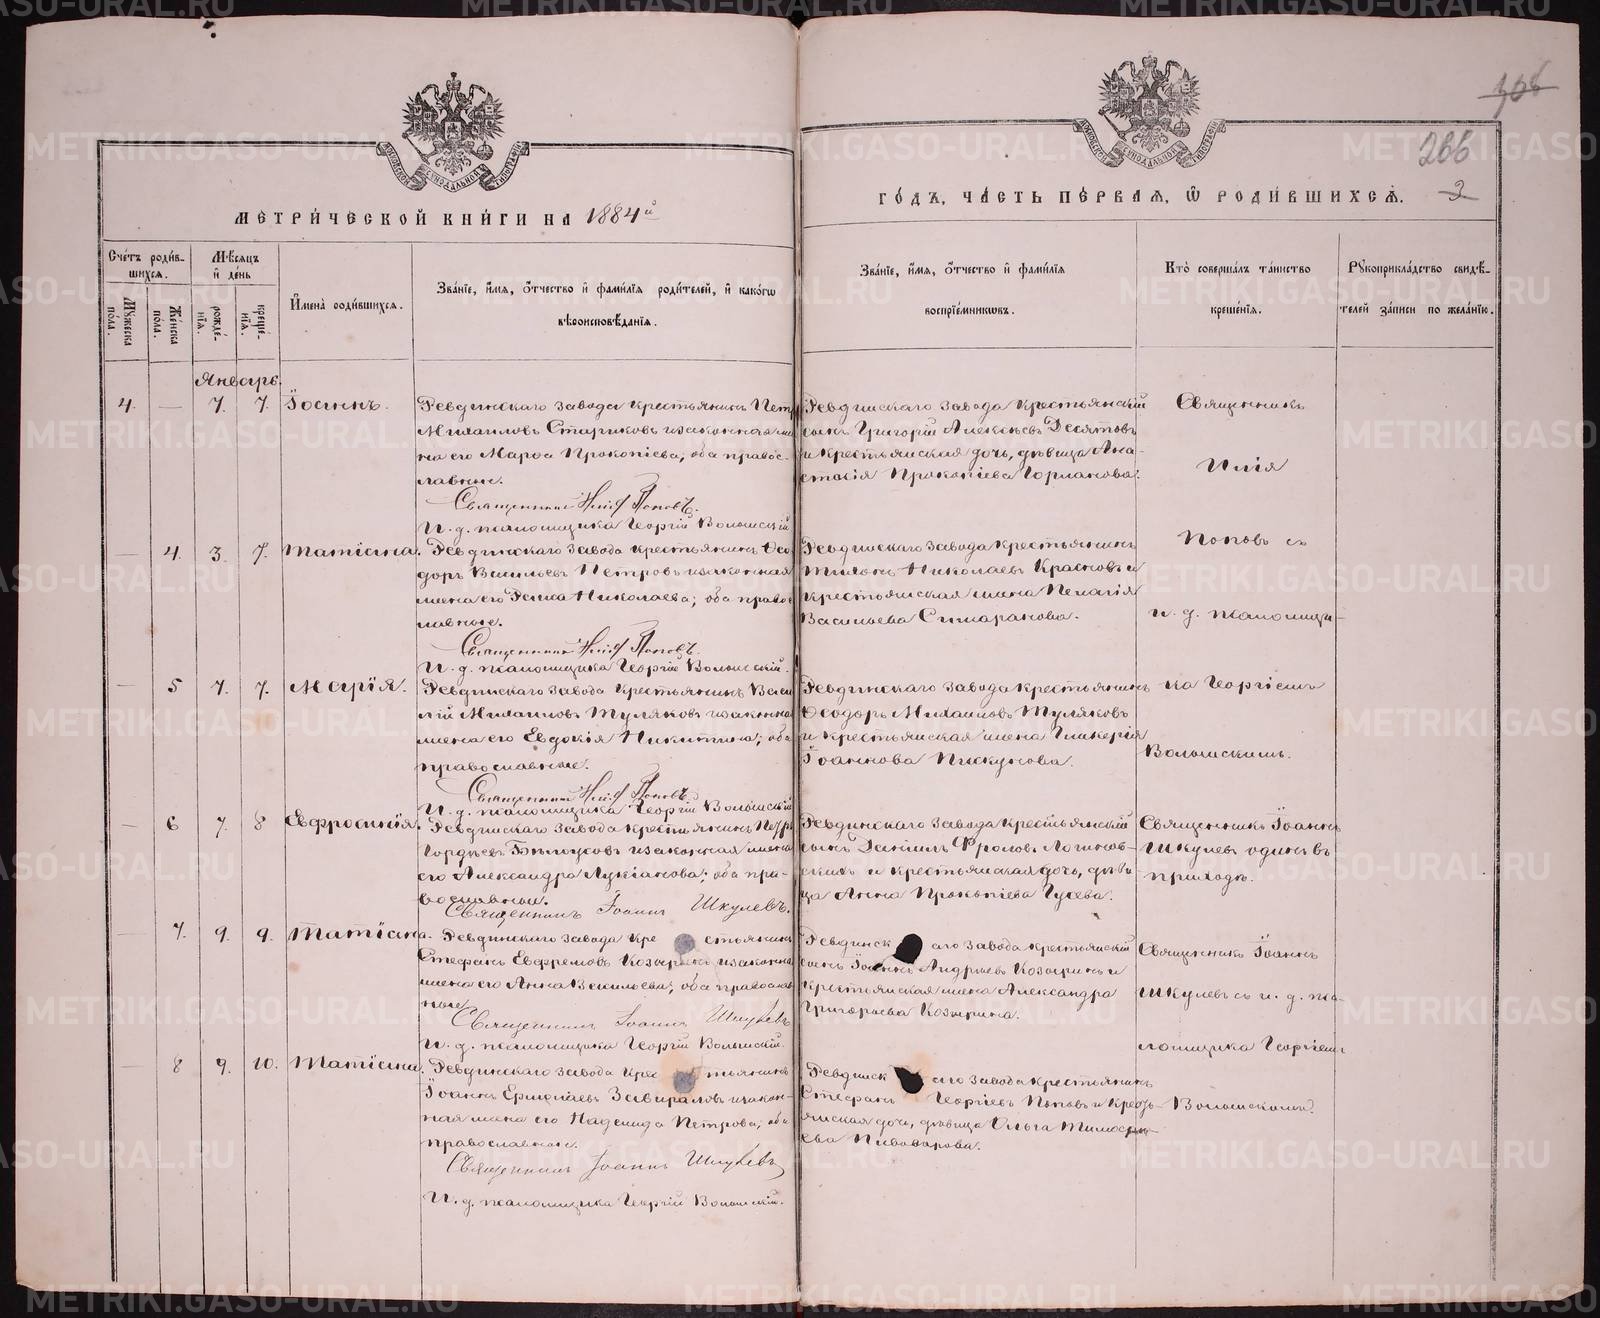 306
266
МЕТРИ́ЧЕСКОЙ КНИ́ГИ НА 1884й
ГО́ДЪ, ЧА́СТЬ ПЕ́РВАЯ, Ѡ РОДИ́ВШИХСЯ. 2
Сче́тъ роди́в-
шихся.
Му́жеска по́ла.
Же́нска по́ла.
Мѣ́сяцъ
и де́нь
рожде́-
нїя.
креще́-
нїя.
И҆мена̀ роди́вшихся.
Зва́нїе, и҆́мя, ѻ҆́тчество и҆ фами́лїя роди́телей, и҆ како́гѡ
вѣроисповѣ́данїя.
Зва́нїе, и҆́мя, ѻ҆́тчество и҆ фами́лїя
воспрїе́мникѡвъ.
Кто̀ соверша́лъ та́инство
креще́нїя.
Рꙋкоприкла́дство свидѣ́-
телей за́писи по жела́нїю.
Январь.
4. — 7. 7. Іоаннъ.
Ревдинскаго завода крестьянинъ Пет
Михаиловъ Стариковъ и законная же
на его Марѳа Прокопіева, оба правос-
лавные.
Священникъ Илія Поповъ.
И. д. псаломщика Георгій Волынскій
Ревдинскаго завода крестьянскій
сынъ Григорій Алексѣевъ Десятовъ
и крестьянская дочь, дѣвица Ана-
стасія Прокопіева Горланова.
Священникъ
Илія
Поповъ съ
и. д. псаломщи-
ка Георгіемъ
Волынскимъ.
— 4. 3. 7. Татіана.
Ревдинскаго завода крестьянинъ Ѳео
доръ Васильевъ Петровъ и законная
жена его Раиса Николаева; оба право
лавные.
Священникъ Илія Поповъ.
И. д. псаломщика Георгій Волынскій.
Ревдинскаго завода крестьянинъ
Николаевъ Красновъ и
крестьянская жена Пелагія
Васильева
— 5 7. 7. Марія.
Ревдинскаго завода крестьянинъ Васи
лій Михаиловъ Туляковъ и законная
жена его Евдокія Никитина; оба
православные.
Священникъ Илія Поповъ.
И. д. псаломщика Георгій Волынскій
Ревдинскаго завода крестьянинъ
Ѳеодоръ Михаиловъ Туляковъ
и крестьянская жена Гликерія
Іоаннова Пискунова.
— 6 7. 8 Евфросинія.
Ревдинскаго завода крестьянинъ Петръ
Гордѣевъ Бѣлоусовъ и законная жена
его Александра Лукіанова; оба пра-
вославные.
Священникъ Іоаннъ Шкулевъ.
Ревдинскаго завода крестьянскій
сынъ Даніилъ Фроловъ Логинов-
скихъ и крестьянская дочь, дѣви
ца Анна Прокопіева Гусева.
Священникъ Іоаннъ
Шкулевъ одинъ въ
приходѣ.
— 7. 9. 9. Татіана.
Ревдинскаго завода крестьянинъ
Стефанъ Евфремовъ Козыринъ и законна
жена его Анна Васильева; оба православ
ные
Священникъ Іоаннъ Шкулевъ
И. д. псаломщика Георгій Волынскій.
Ревдинскаго завода крестьянскій
сынъ Іоаннъ Андреевъ Козыринъ и
крестьянская жена Александра
Григорьева Козырина.
Священникъ Іоаннъ
Шкулевъ съ и. д. пса-
ломщика Георгіемъ
Волынскимъ.
— 8 9. 10. Татіана.
Ревдинскаго завода крестьянинъ
Іоаннъ Ермолаевъ Завираловъ и закон-
ная жена его Надежда Петрова; оба
православные.
Священникъ Іоаннъ Шкулевъ
И. д. псаломщика Георгій Волынскій.
Ревдинскаго завода крестьянинъ
Стефанъ Георгіевъ Поповъ и кресть-
янская дочь, дѣвица Ольга Тимоѳе-
ева Пивоварова.
METRIKI.GASO-URAL.RU